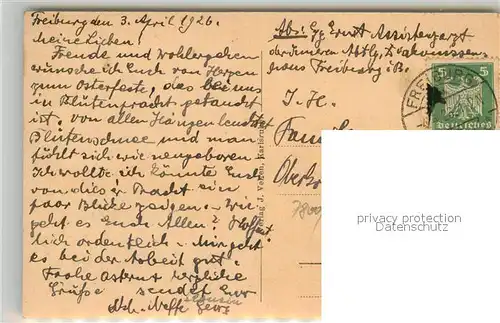 Freiburg den 3. April 1926.
Meine Lieben!
Freude und Wohlergehen
wünsche ich Euch von Herzen
zum Osterfeste, das bei uns
in Blütenpracht getaucht
ist. Von allen Hängen leuchtet
Blütenschnee und man
fühlt sich wie neugeboren.
Ich wollte ich könnte Euch
von dieser Pracht ein
paar Blicke zeigen. Wie
geht es Euch Allen? Hoffent-
lich ordentlich. Mir geht
es bei der Arbeit gut.
Frohe Ostern herzliche
Grüsse sendet Euer
Neffe Georg
Abs: Gg Ernst Assistenzarzt
der inneren Abtlg. Diakonissen
haus Freiburg i. B.
I. H.
Oberko
Verlag J. Velten, Karlsruhe
FREIBURG
5 5
Deutsches
property protection
Datenschutz